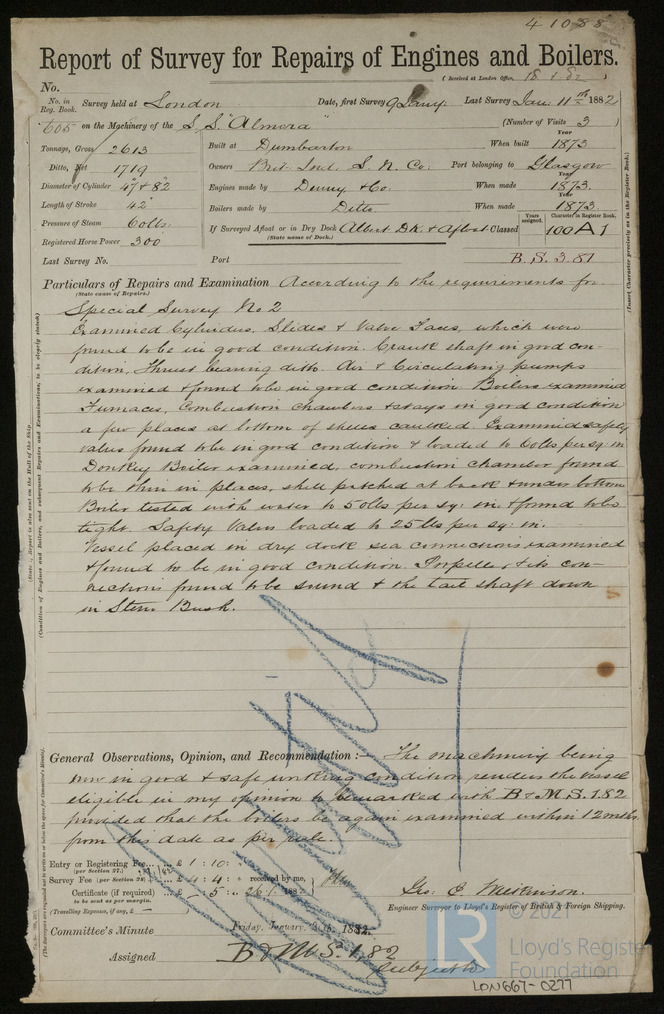 41088
Report of Survey for Repairs of Engines and Boilers.
(Received at London Office, 18.1.82)
No.
No. in Reg. Book. Survey held at London Date, first Survey 9 Jany Last Survey Jan 11th 1882
605 on the Machinery of the S.S. "Almora" (Number of Visits 3)
Tonnage, Gross 2613
Ditto, Net 1719
Diameter of Cylinder 47 & 82
Length of Stroke 42"
Pressure of Steam 60lbs.
Registered Horse Power 300
Built at Dumbarton When built Year 1873
Owners Brit. Ind. S. N. Co. Port belonging to Glasgow
Engines made by Denny & Co. When made Year 1873.
Boilers made by Ditto When made Year 1873
If Surveyed Afloat or in Dry Dock Albert Dk & Afloat Classed
(State name of Dock.)
Years assigned. Character in Register Book.
100 A 1
Last Survey No. Port B.S. 3.81
Particulars of Repairs and Examination According to the requirements for
(State cause of Repairs.)
Special Survey No 2
Examined Cylinders, Slides & Valve Faces, which were
found to be in good condition. Crank shaft in good con-
dition, Thrust bearing ditto. Air & Circulating pumps
examined & found to be in good condition. Boilers examined
Furnaces, Combustion Chambers & stays in good condition
a few places at bottom of shells caulked. Examined safety
valves found to be in good condition & loaded to 60lbs per sq. in
Donkey Boiler examined, combustion chamber found
to be thin in places, shell patched at back & under bottom
Boiler tested with water to 50lbs per sq: in. & found to be
tight. Safety Valves loaded to 25lbs per sq: in.
Vessel placed in dry dock sea connections examined
& found to be in good condition. Propeller & its con-
nections found to be sound & the tail shaft down
in Stern Bush.
General Observations, Opinion, and Recommendation:— The machinery being
now in good & safe working condition renders the vessel
eligible in my opinion to be marked with B & M.S. 1.82
provided that the boilers be again examined within 12 mths
from this date as per rule.
Entry or Registering Fee... £ 1 : 10 :
(per Section 27.)
Survey Fee (per Section 28) £ 4 : 4 : received by me,
Certificate (if required) £ - : 5 : 26/1 1882
to be sent as per margin.
(Travelling Expenses, if any, £ — )
Engineer Surveyor to Lloyd's Register of British & Foreign Shipping.
Committee's Minute Friday, January 1882.
Assigned B & M S. 1,82
Subject to
© 2021
LR
Lloyd's Register
Foundation
LON667-0277
(Insert Character precisely as in the Register Book.)